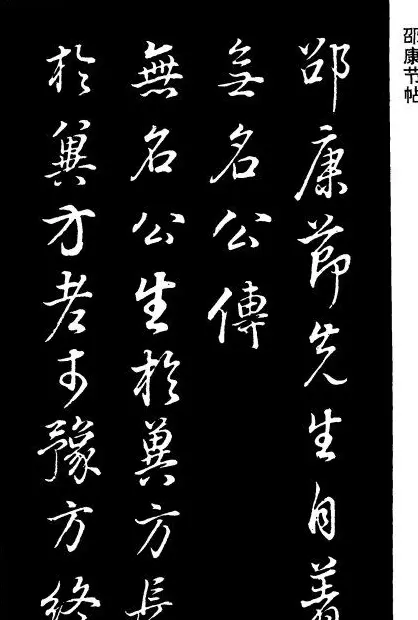 邵康节帖
邵康節先生自著
無名公傳
無名公生於冀方長
於冀方老于豫方終